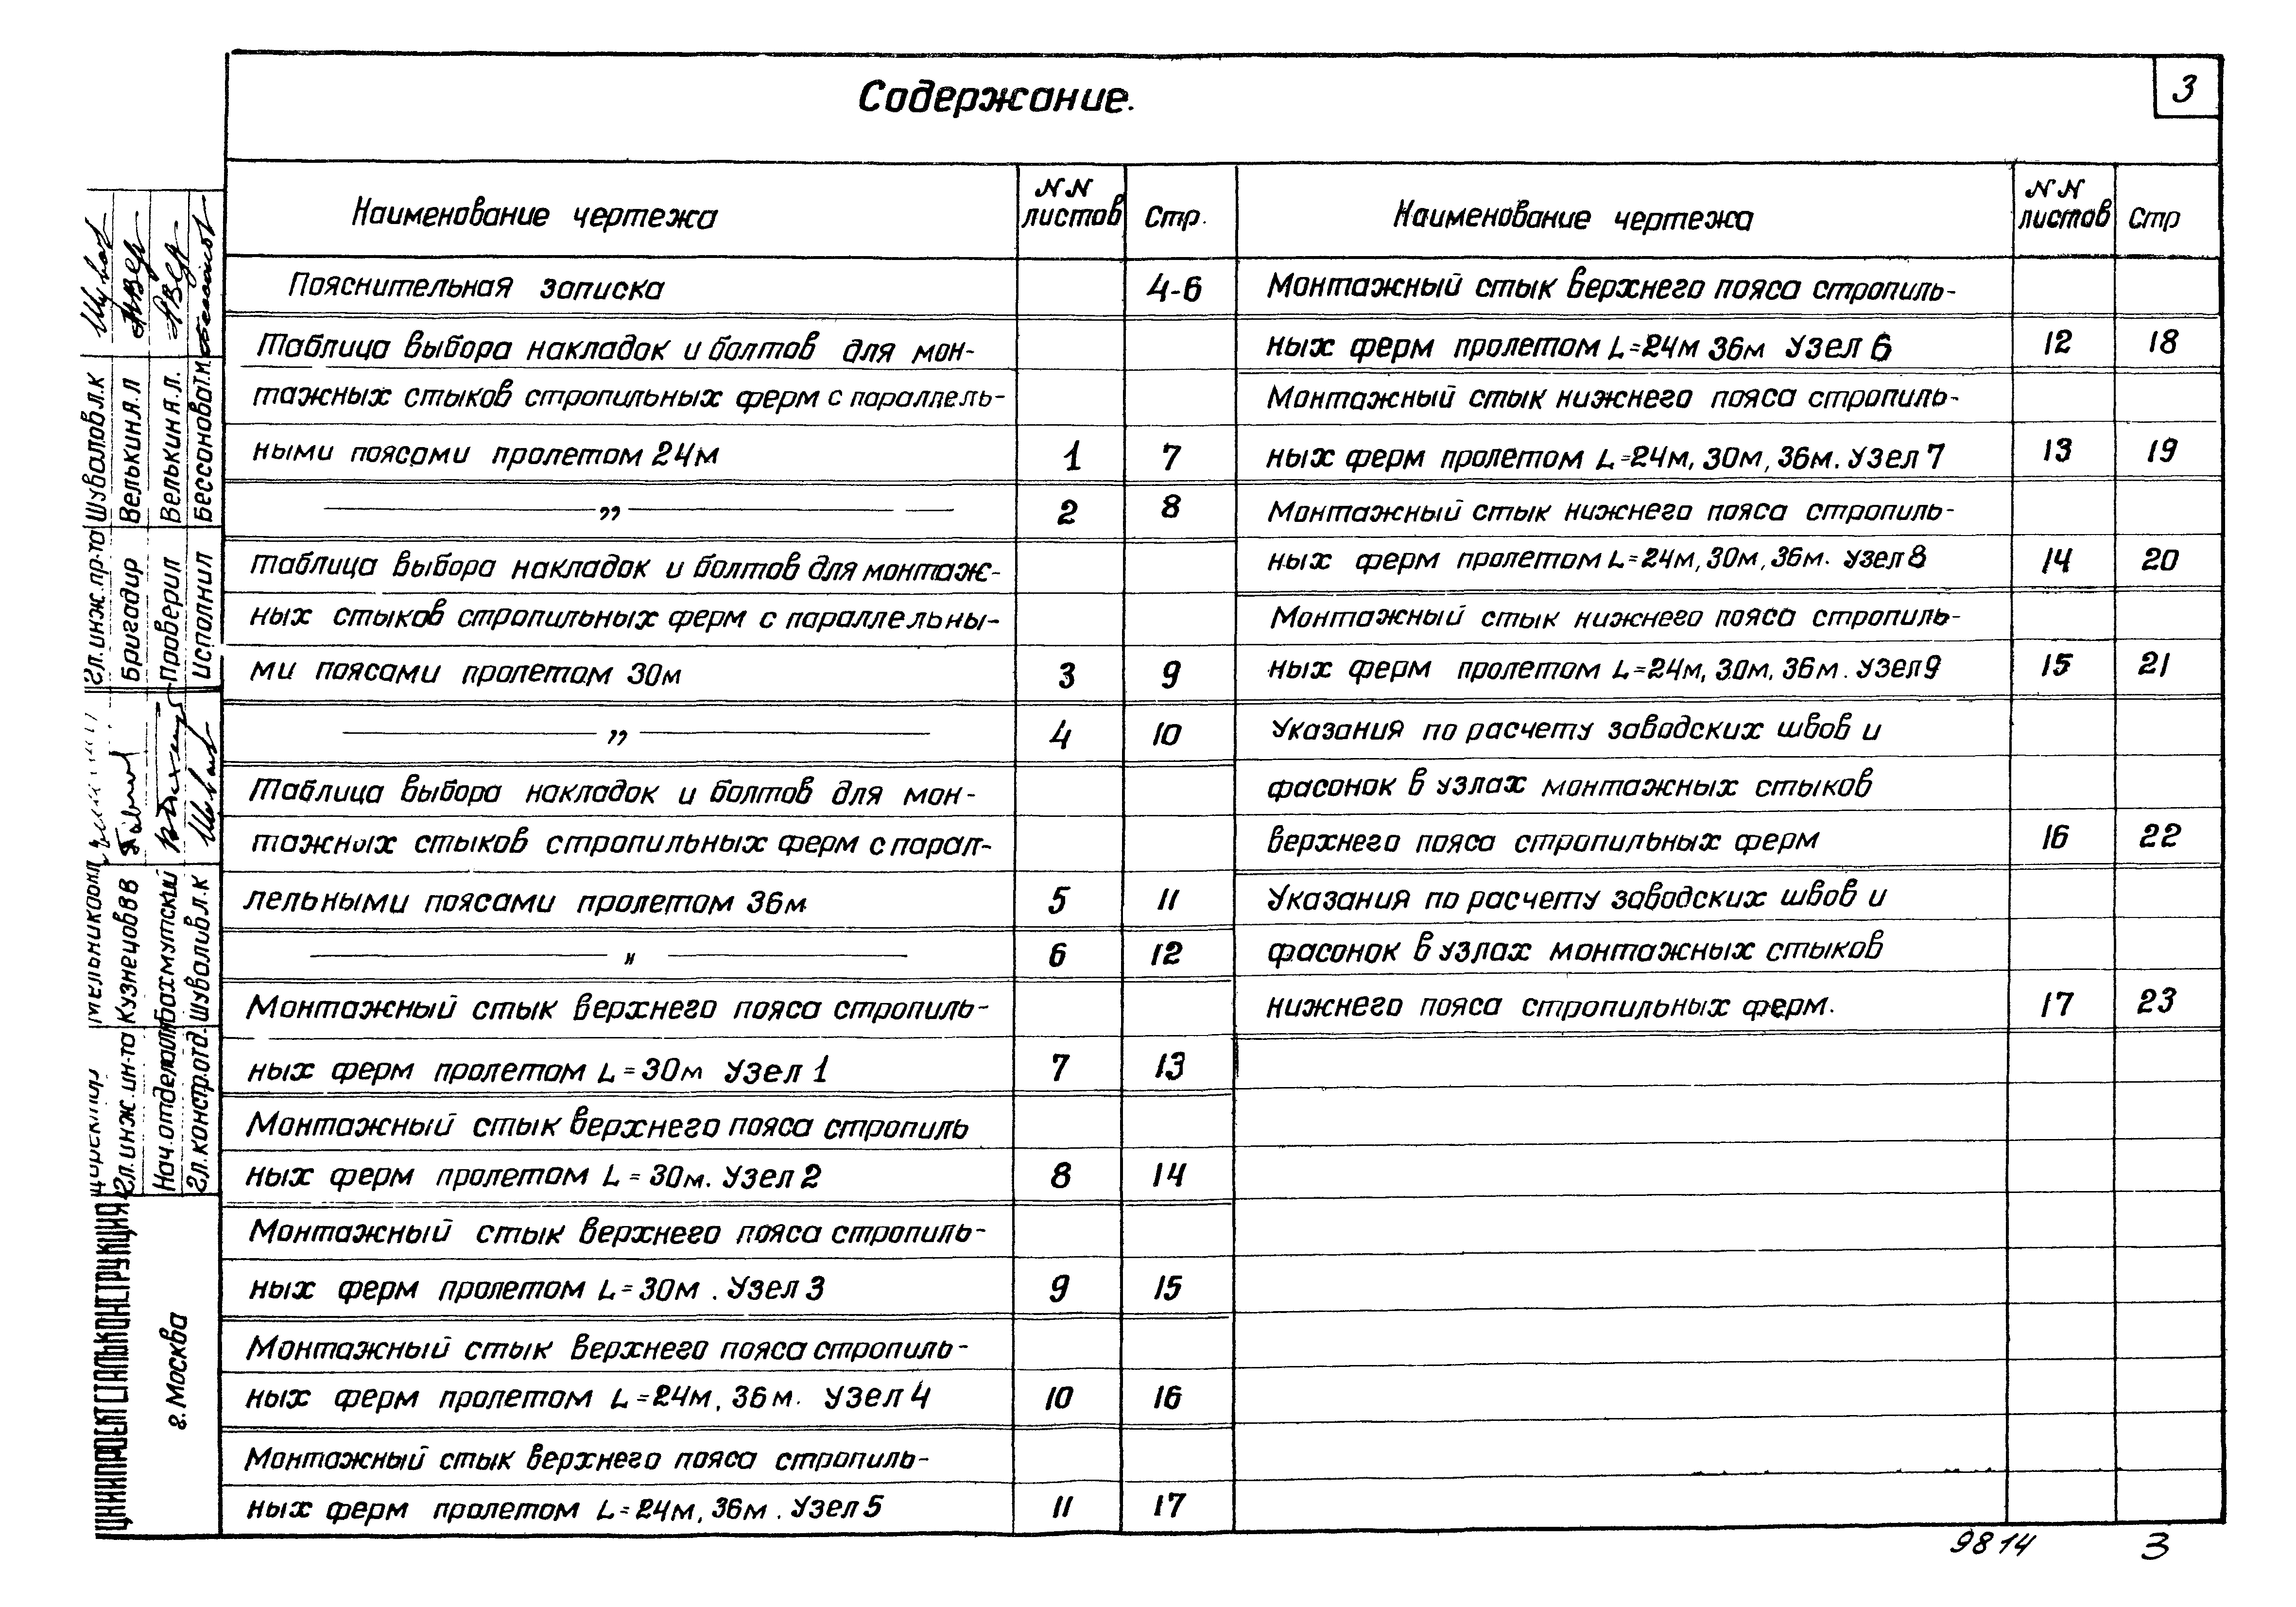 Содержание.
3
Наименование чертежа
NN листов
Стр.
Пояснительная записка 4-6
Таблица выбора накладок и болтов для мон-
тажных стыков стропильных ферм с параллель-
ными поясами пролетом 24м 1 7
— „ — 2 8
Таблица выбора накладок и болтов для монтаж-
ных стыков стропильных ферм с параллельны-
ми поясами пролетом 30м 3 9
— „ — 4 10
Таблица выбора накладок и болтов для мон-
тажных стыков стропильных ферм с парал-
лельными поясами пролетом 36м 5 11
— „ — 6 12
Монтажный стык верхнего пояса стропиль-
ных ферм пролетом L=30м Узел 1 7 13
Монтажный стык верхнего пояса стропиль
ных ферм пролетом L=30м. Узел 2 8 14
Монтажный стык верхнего пояса стропиль-
ных ферм пролетом L=30м. Узел 3 9 15
Монтажный стык верхнего пояса стропиль-
ных ферм пролетом L=24м, 36м. Узел 4 10 16
Монтажный стык верхнего пояса стропиль-
ных ферм пролетом L=24м, 36м. Узел 5 11 17
Наименование чертежа
NN листов
Стр
Монтажный стык верхнего пояса стропиль-
ных ферм пролетом L=24м 36м Узел 6 12 18
Монтажный стык нижнего пояса стропиль-
ных ферм пролетом L=24м, 30м, 36м. Узел 7 13 19
Монтажный стык нижнего пояса стропиль-
ных ферм пролетом L=24м, 30м, 36м. Узел 8 14 20
Монтажный стык нижнего пояса стропиль-
ных ферм пролетом L=24м, 30м, 36м. Узел 9 15 21
Указания по расчету заводских швов и
фасонок в узлах монтажных стыков
верхнего пояса стропильных ферм 16 22
Указания по расчету заводских швов и
фасонок в узлах монтажных стыков
нижнего пояса стропильных ферм. 17 23
Гл.инж.пр-та Шувалов Л.К
Бригадир Велькин Я.Л
Проверил Велькин Я.Л.
Исполнил Бессонова Т.М.
Гл.инж.ин-та Кузнецов В В
Нач.отдела Бахмутский
Гл.констр.отд. Шувалив Л.К
ЦНИИПРОЕКТСТАЛЬКОНСТРУКЦИЯ
г. Москва
9814 3